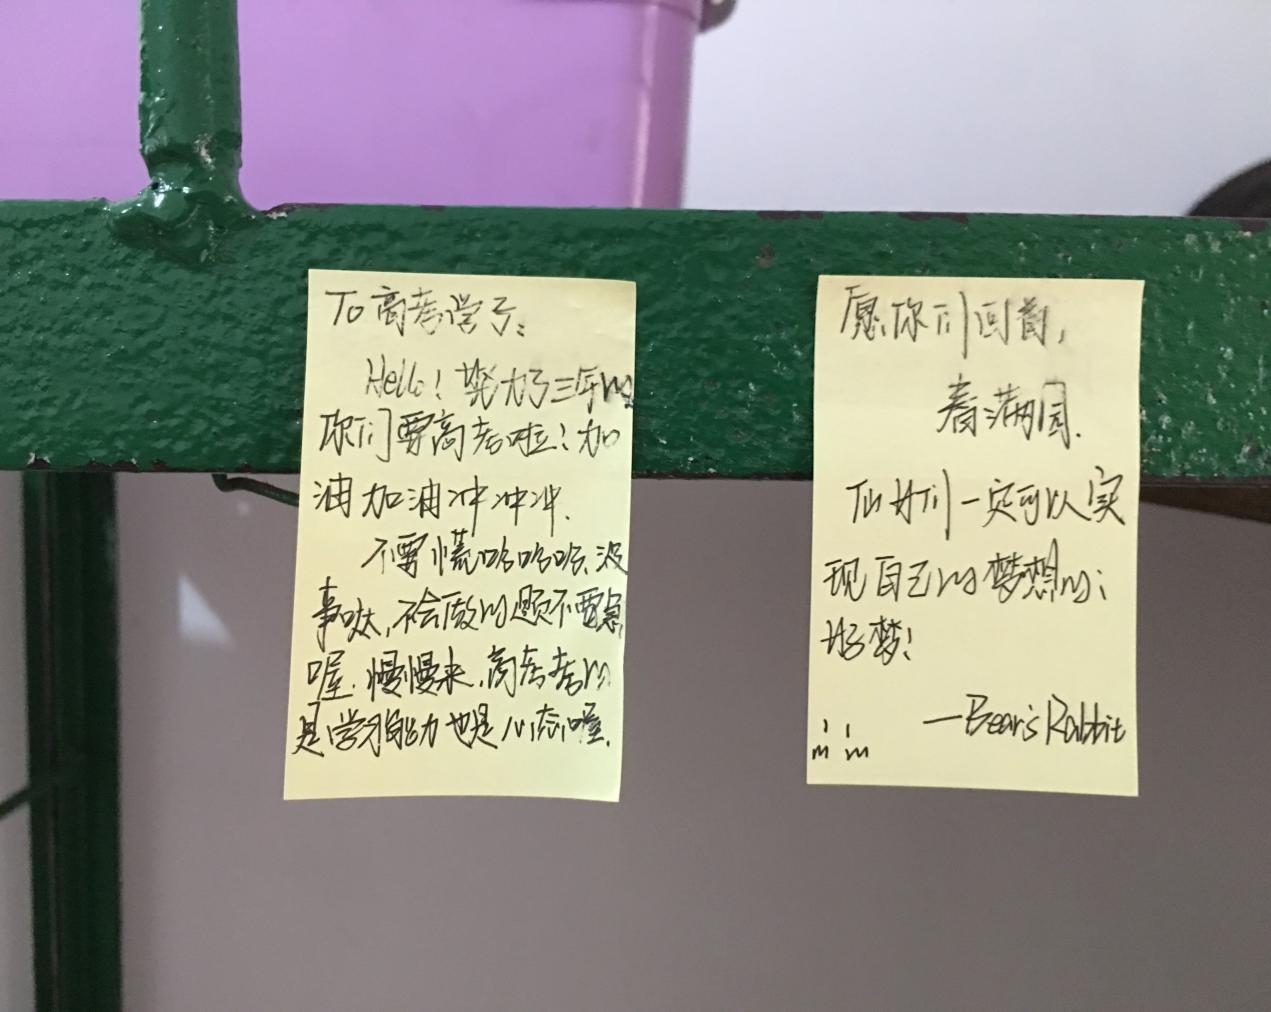 To 高考学子:
Hello! 努力了三年的
你们要高考啦!加
油加油冲冲冲.
不要慌哈哈哈.没
事哒,不会做的题不要急
喔.慢慢来,高考考的
是学习能力也是心态喔.
愿你们回首,
春满园.
仙女们一定可以实
现自己的梦想的;
好梦!
—Bear's Rabbit